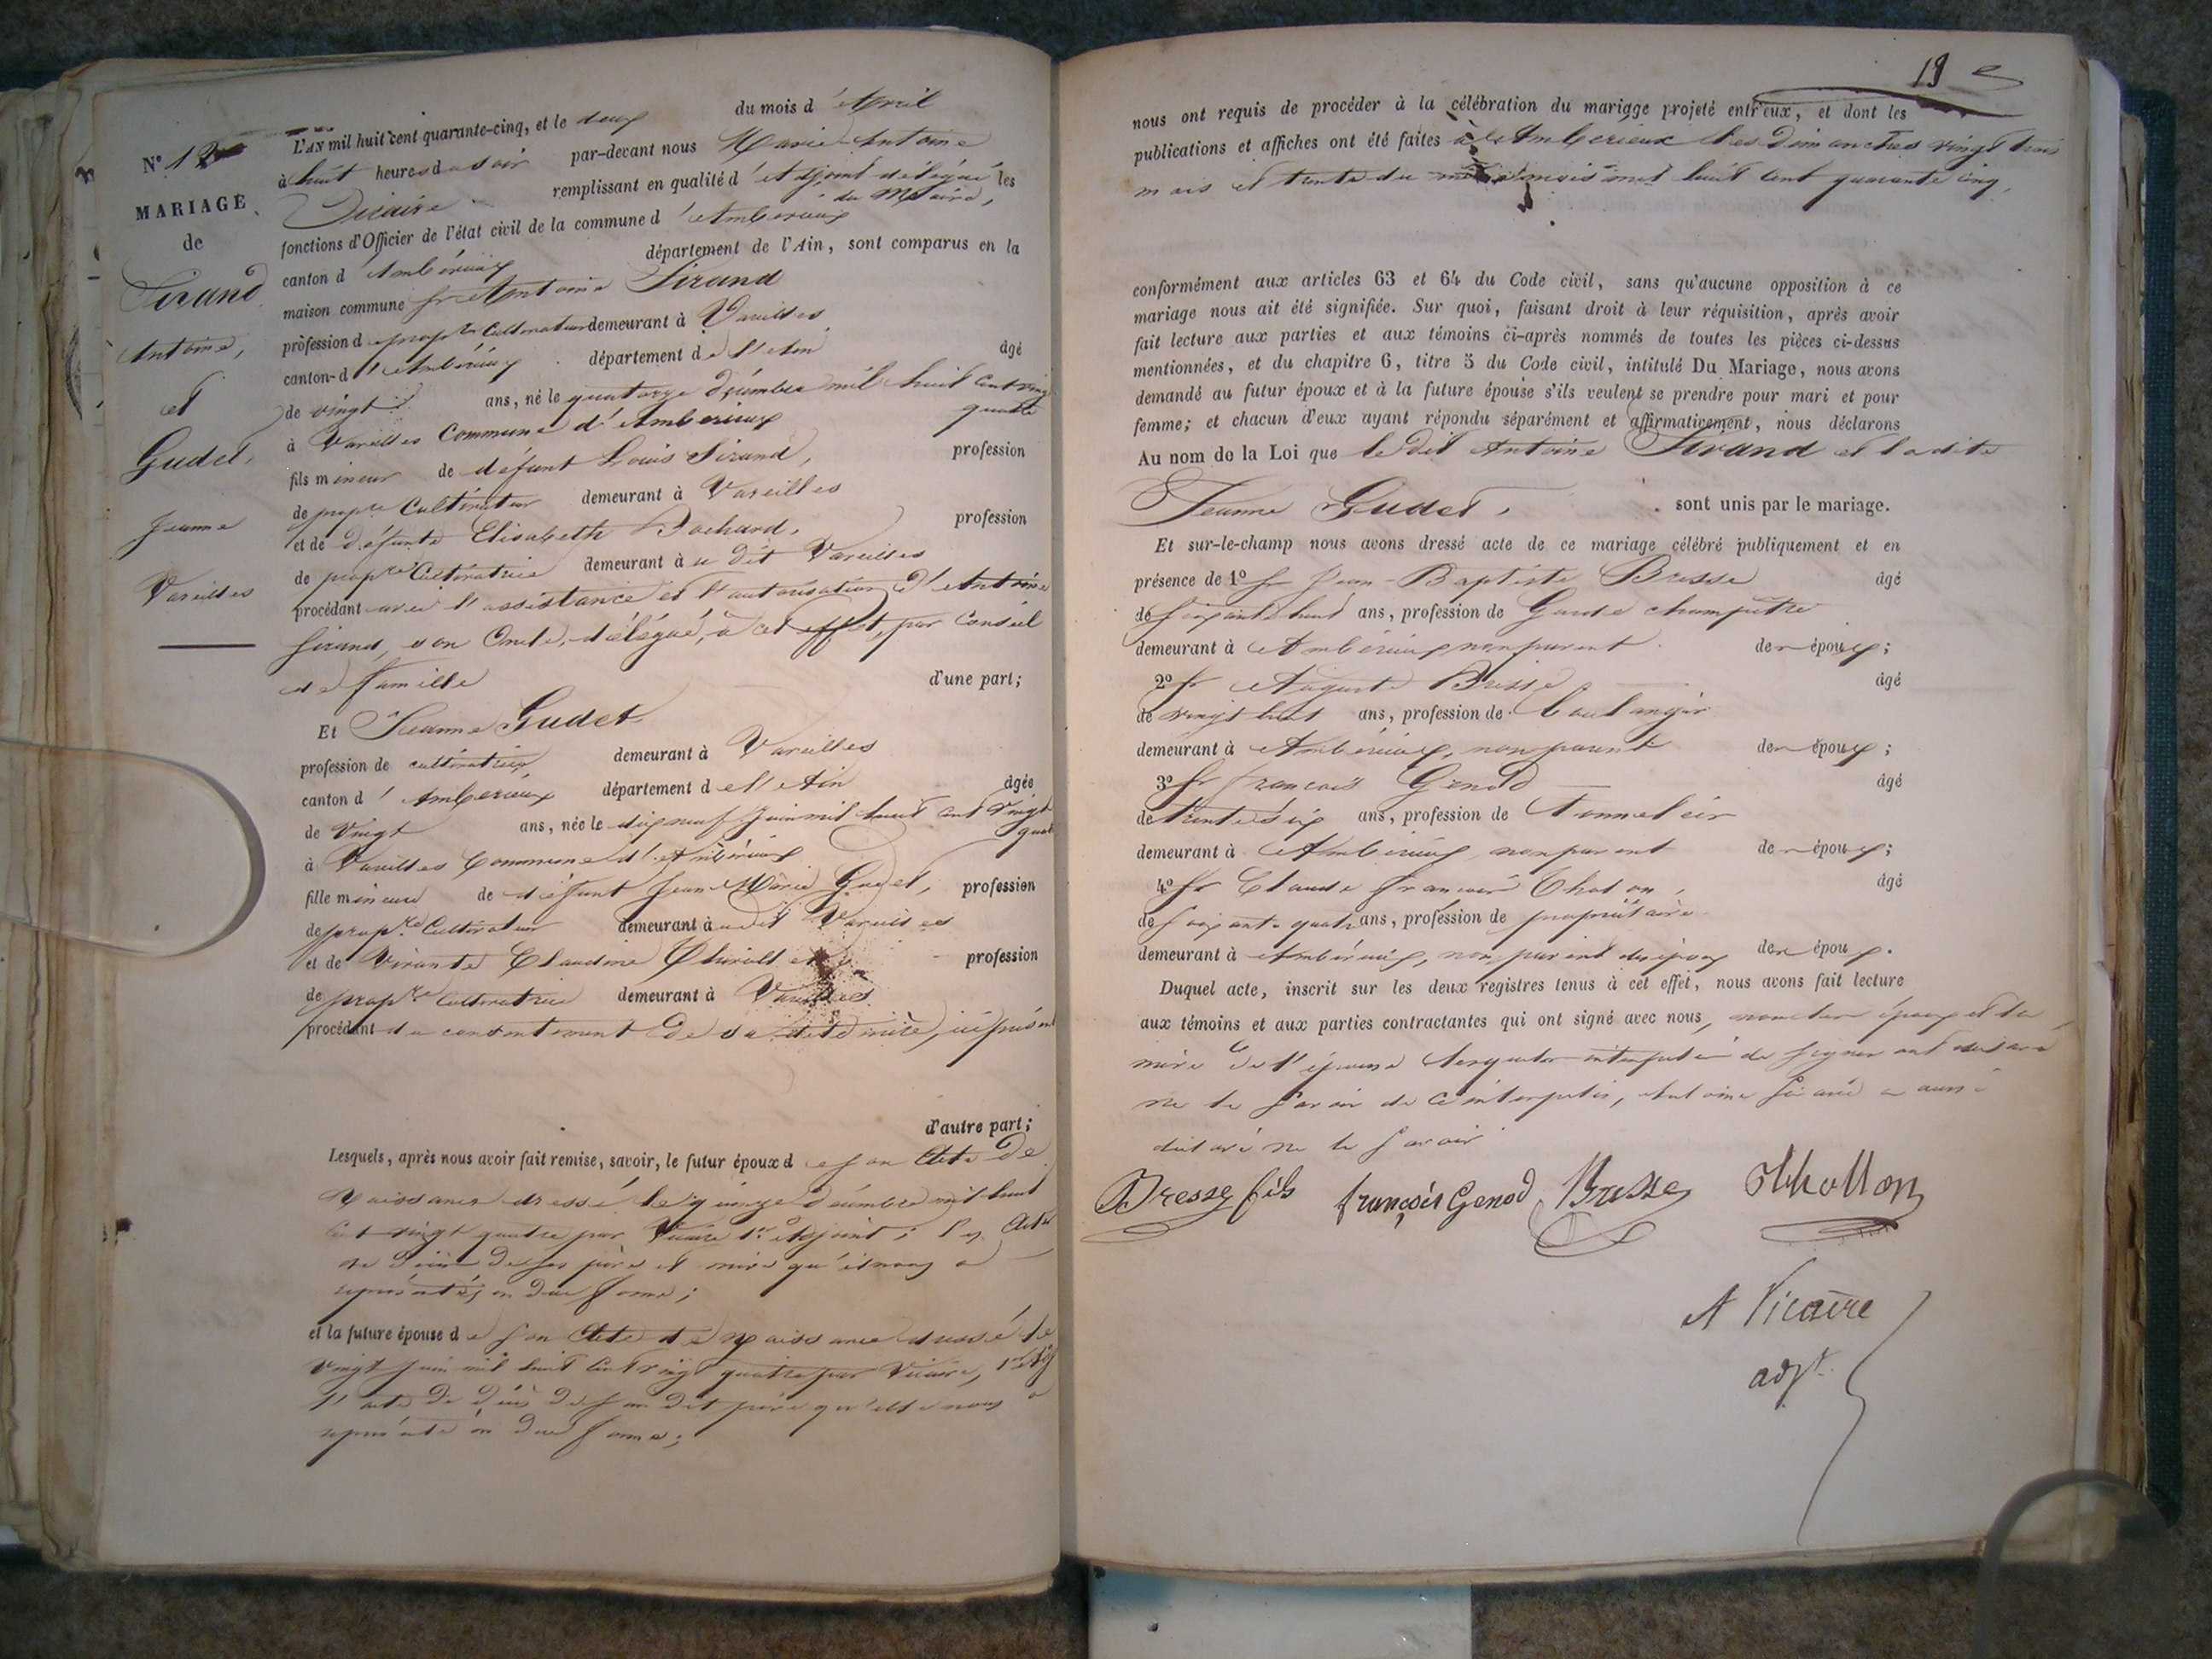 N° 12
MARIAGE
de
Sirand
Antoine,
et
Gudet,
Jeanne
Vareilles
L'AN mil huit cent quarante-cinq, et le deux du mois d'Avril
à huit heures du soir par-devant nous Marie Antoine
Vicaire remplissant en qualité d'Adjoint délégué du Maire, les
fonctions d'Officier de l'état civil de la commune d'Ambérieux
canton d'Ambérieux département de l'Ain, sont comparus en la
maison commune sr Antoine Sirand
profession de propre Cultivateur demeurant à Vareilles
canton d'Ambérieux département de l'Ain âgé
de vingt ans, né le quatorze décembre mil huit cent vingt quatre
à Vareilles Commune d'Amberieux
fils mineur de défunt Louis Sirand, profession
de propre Cultivateur demeurant à Vareilles
et de défunte Elisabeth Bochard, profession
de propre Cultivatrice demeurant à u dit Vareilles
procédant avec l'assistance et l'autorisation d'Antoine
Sirand, son Oncle, délégué, à cet effet, par Conseil
de famille d'une part;
Et Jeanne Gudet
profession de cultivatrice, demeurant à Vareilles
canton d'Amberieux département de l'Ain âgée
de Vingt ans, née le dix neuf Juin mil huit cent Vingt quat
à Vareilles Commune d'Ambérieux
fille mineure de défunt Jean Marie Gudet, profession
de propre Cultivateur demeurant à udit Vareilles
et de Vivante Claudine profession
de propre Cultivatrice demeurant à Vareilles
procédant du consentement de sa dite mère, ici présent
d'autre part;
Lesquels, après nous avoir fait remise, savoir, le futur époux de son Acte de
Naissance dressé le quinze décembre mil huit
cent vingt quatre par Vicaire 1er Adjoint; les Actes
de décès de ses père et mère qu'il nous a
représentés en due forme;
et la future épouse de son Acte de Naissance dressé le
Vingt juin mil huit cent vingt quatre par Vicaire, 1er Adj
l'acte de décès de son dit père qu'elle nous a
représenté en due forme;
19
nous ont requis de procéder à la célébration du mariage projeté entr'eux, et dont les
publications et affiches ont été faites à Amberieux les Dimanches vingt trois
mars et trente du mois mil huit cent quarante cinq,
conformément aux articles 63 et 64 du Code civil, sans qu'aucune opposition à ce
mariage nous ait été signifiée. Sur quoi, faisant droit à leur réquisition, après avoir
fait lecture aux parties et aux témoins ci-après nommés de toutes les pièces ci-dessus
mentionnées, et du chapitre 6, titre 5 du Code civil, intitulé Du Mariage, nous avons
demandé au futur époux et à la future épouse s'ils veulent se prendre pour mari et pour
femme; et chacun d'eux ayant répondu séparément et affirmativement, nous déclarons
Au nom de la Loi que le dit Antoine Sirand et ladite
Jeanne Gudet, sont unis par le mariage.
Et sur-le-champ nous avons dressé acte de ce mariage célébré publiquement et en
présence de 1° sr Jean-Baptiste Bresse âgé
de soixante huit ans, profession de Garde champêtre
demeurant à Ambérieux non parent des époux;
2° sr Auguste Bresse âgé
de vingt huit ans, profession de boulanger
demeurant à Ambérieux, non parent des époux;
3° sr francois Genod âgé
de trente six ans, profession de Tonnelier
demeurant à Ambérieux non parent des époux;
4° sr Claude françois Cholon, âgé
de soixante quatre ans, profession de propriétaire
demeurant à Ambérieux, non parent des époux des époux.
Duquel acte, inscrit sur les deux registres tenus à cet effet, nous avons fait lecture
aux témoins et aux parties contractantes qui ont signé avec nous, non les époux et la
mère de l'épouse lesquels interpelés de signer ont déclaré
ne le savoir de ce interpelés, Antoine Sirand a aussi
déclaré ne le savoir
Bresse fils françois Genod Bresse Chollon
A Vicaire
adjt